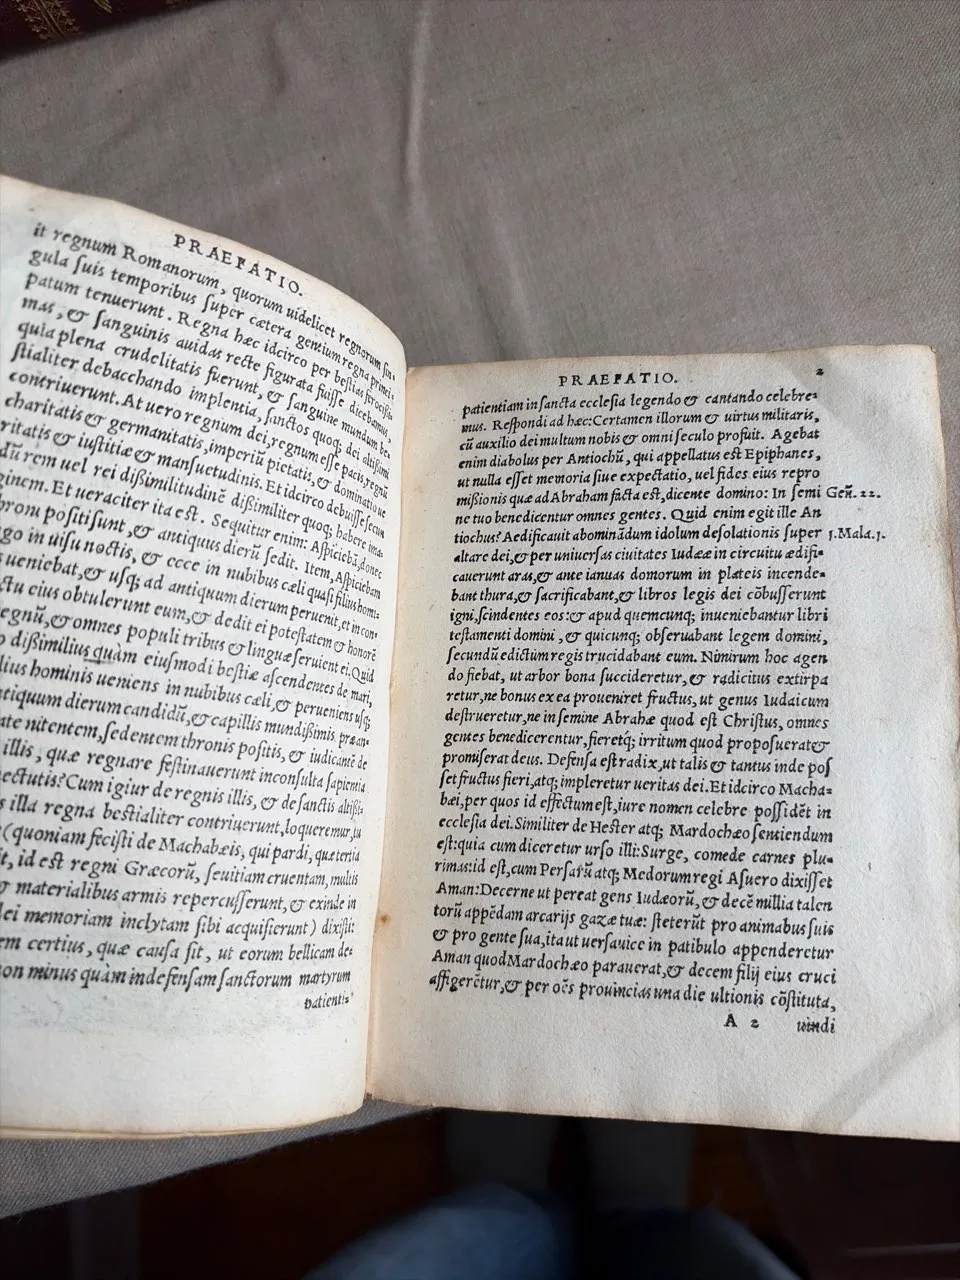 PRAEFATIO.
it regnum Romanorum, quorum uidelicet regnorum sin-
gula ſuis temporibus ſuper cætera gentium regna princi-
patum tenuerunt. Regna hæc idcirco per beſtias ferociſsi-
mas, & ſanguinis auidas recte figurata fuiſſe dicebamus,
quia plena crudelitatis fuerunt, & ſanguine mundum be-
ſtialiter debacchando implentia, ſanctos quoq; dei altiſsimi
contriuerunt. At uero regnum dei, regnum eſſe pacis, regnū
charitatis & germanitatis, imperiū pietatis, & dominatione
ritatis & iuſtitiæ & manſuetudinis. Et idcirco debuiſſe ſecun
dū rem uel rei diſsimilitudinē diſsimiliter quoq; habere ima
ginem. Et ueraciter ita eſt. Sequitur enim: Aſpiciebā, donec
throni poſiti ſunt, & antiquus dierū ſedit. Item, Aſpiciebam
go in uiſu noctis, & ecce in nubibus cæli quaſi filius homi-
s ueniebat, & uſq; ad antiquum dierum peruenit, et in con-
ctu eius obtulerunt eum, & dedit ei poteſtatem & honorē
egnū, & omnes populi tribus & linguæ ſeruient ei. Quid
diſsimilius quàm eiuſmodi beſtiæ aſcendentes de mari,
lius hominis ueniens in nubibus cæli, & perueniens uſq;
ntiquum dierum candidū, & capillis mundiſsimis præan-
ate nitentem, ſedentem thronis poſitis, & iudicantē de
illis, quæ regnare feſtinauerunt inconſulta ſapientia
ectutis? Cum igiur de regnis illis, & de ſanctis altiſsi-
s illa regna beſtialiter contriuerunt, loqueremur, tu
(quoniam feciſti de Machabæis, qui pardi, quæ tertia
it, id eſt regni Græcorū, ſeuitiam cruentam, multis
materialibus armis repercuſſerunt, & exinde in
dei memoriam inclytam ſibi acquiſierunt) dixiſti:
em certius, quæ cauſa ſit, ut eorum bellicam de-
non minus quàm indefenſam ſanctorum martyrum
patienti-
PRAEFATIO. 2
patientiam in ſancta eccleſia legendo & cantando celebre-
mus. Reſpondi ad hæc: Certamen illorum & uirtus militaris,
cū auxilio dei multum nobis & omni ſeculo profuit. Agebat
enim diabolus per Antiochū, qui appellatus eſt Epiphanes,
ut nulla eſſet memoria ſiue expectatio, uel fides eius repro
miſsionis quæ ad Abraham facta eſt, dicente domino: In ſemi Geñ. 22.
ne tuo benedicentur omnes gentes. Quid enim egit ille An
tiochus? Aedificauit abominādum idolum deſolationis ſuper 1.Mala.1.
altare dei, & per uniuerſas ciuitates Iudææ in circuitu ædifi-
cauerunt aras, & ante ianuas domorum in plateis incende-
bant thura, & ſacrificabant, & libros legis dei cōbuſſerunt
igni, ſcindentes eos: & apud quemcunq; inueniebantur libri
teſtamenti domini, & quicunq; obſeruabant legem domini,
ſecundū edictum regis trucidabant eum. Nimirum hoc agen
do fiebat, ut arbor bona ſuccideretur, & radicitus extirpa
retur, ne bonus ex ea proueniret fructus, ut genus Iudaicum
deſtrueretur, ne in ſemine Abrahæ quod eſt Chriſtus, omnes
gentes benedicerentur, fieretq; irritum quod propoſuerat &
promiſerat deus. Defenſa eſt radix, ut talis & tantus inde poſ
ſet fructus fieri, atq; impleretur ueritas dei. Et idcirco Macha-
bæi, per quos id effectum eſt, iure nomen celebre poſsidēt in
eccleſia dei. Similiter de Heſter atq; Mardochæo ſentiendum
eſt: quia cum diceretur urſo illi: Surge, comede carnes plu-
rimas: id eſt, cum Perſarū atq; Medorum regi Aſuero dixiſſet
Aman: Decerne ut pereat gens Iudæorū, & decē millia talen
torū appēdam arcarijs gazæ tuæ: ſteterūt pro animabus ſuis
& pro gente ſua, ita ut uerſa uice in patibulo appenderetur
Aman quod Mardochæo parauerat, & decem filij eius cruci
affigerētur, & per oēs prouincias una die ultionis cōſtituta,
A 2 uindi